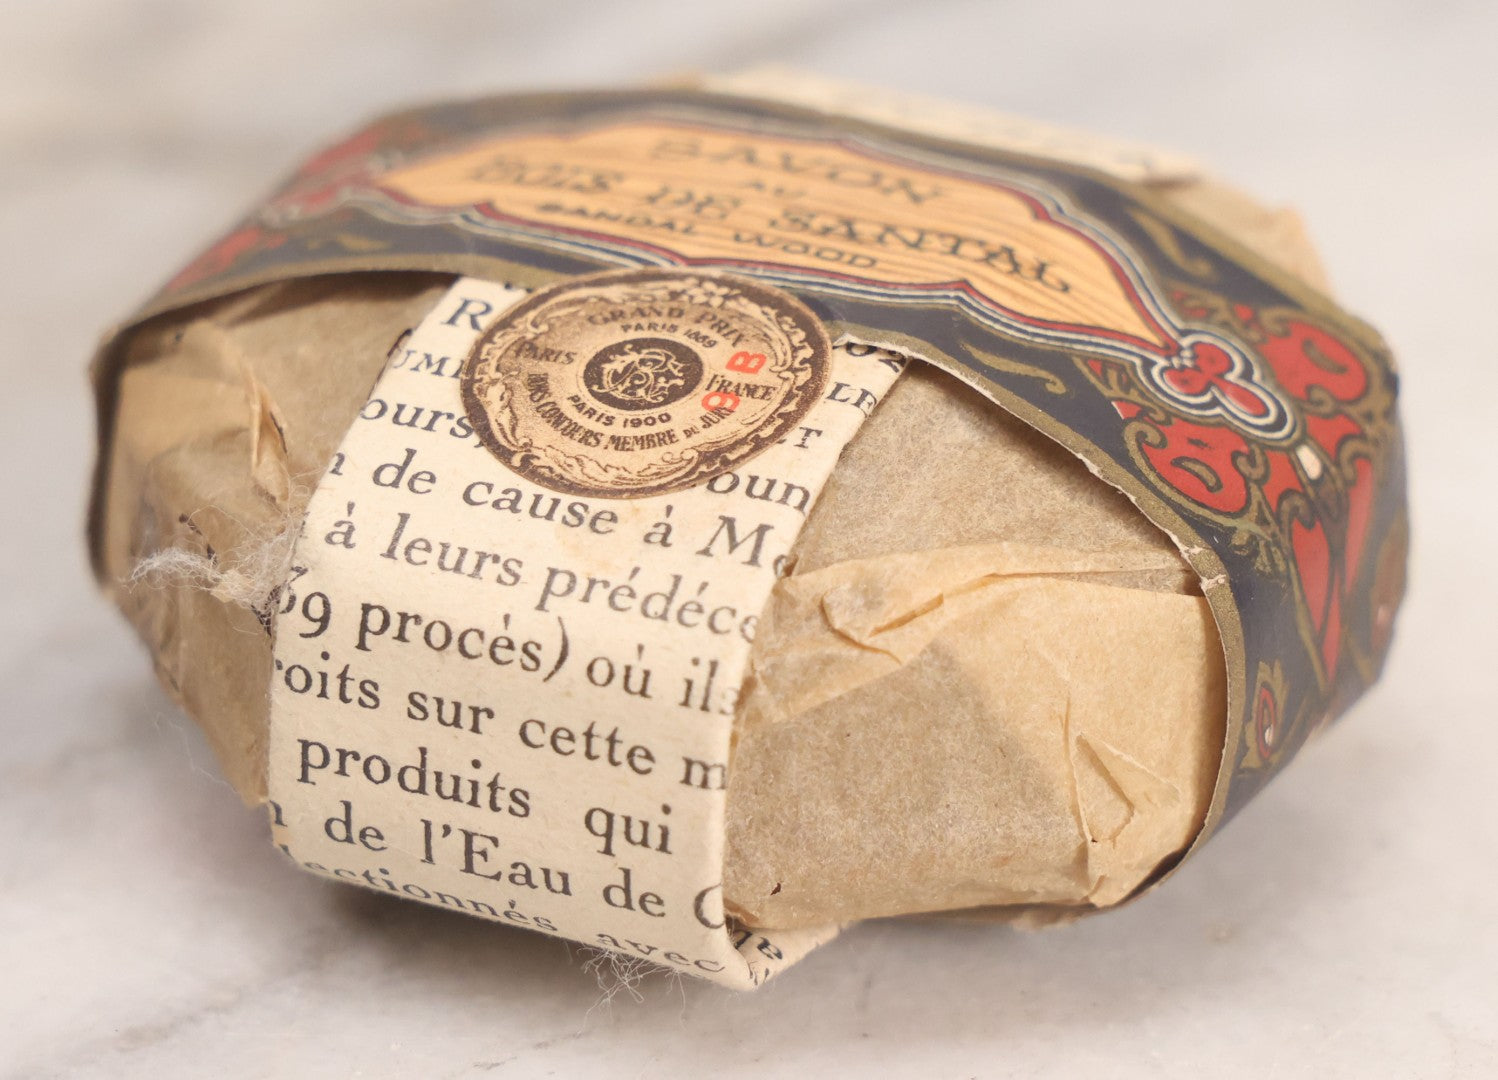 SAVON
AU
BOIS DE SANTAL
SANDAL WOOD
GRAND PRIX
PARIS 1889
PARIS
FRANCE
PARIS 1900
HORS CONCOURS MEMBRE DU JURY
9 B
R
UM LE
ours, ET
n de cause à Mo
à leurs prédéce
39 procès) où ils
roits sur cette m
produits qui
n de l'Eau de C
lectionnés avec